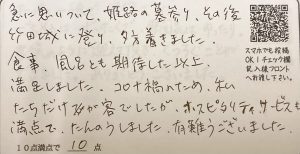 急に思いついて、姫路の墓参り、その後
竹田城に登り、夕方着きました。
食事、風呂とも期待した以上、
満足しました。コロナ禍のため、私
たちだけが客でしたが、ホスピタリティ、サービスも
満点で、たんのうしました。有難うございました。
10点満点で 10 点
スマホでも投稿
OK！チェック欄
記入後フロント
へお渡し下さい。